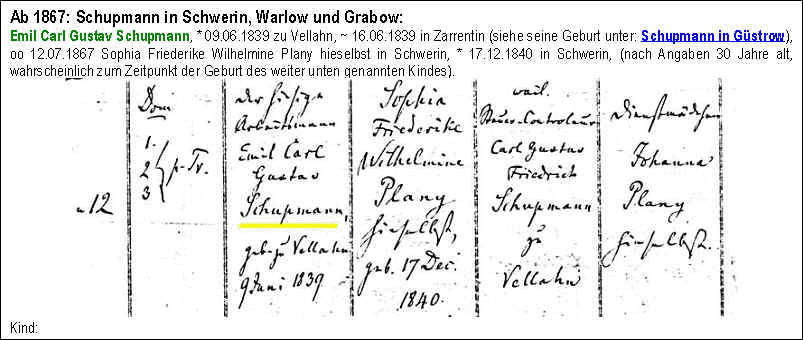 Ab 1867: Schupmann in Schwerin, Warlow und Grabow:
Emil Carl Gustav Schupmann, * 09.06.1839 zu Vellahn, ~ 16.06.1839 in Zarrentin (siehe seine Geburt unter: Schupmann in Güstrow),
oo 12.07.1867 Sophia Friederike Wilhelmine Plany hieselbst in Schwerin, * 17.12.1840 in Schwerin, (nach Angaben 30 Jahre alt,
wahrscheinlich zum Zeitpunkt der Geburt des weiter unten genannten Kindes).
12
Dom
1.
2 p. Tr.
3
der hiesige
Arbeitsmann
Emil Carl
Gustav
Schupmann,
geb. zu Vellahn
9 Juni 1839
Sophia
Friederike
Wilhelmine
Plany
hieselbst,
geb. 17 Dec.
1840.
weil.
Steuer-Controleur
Carl Gustav
Friedrich
Schupmann
zu
Vellahn
Dienstmädchen
Johanna
Plany
hieselbst.
Kind: